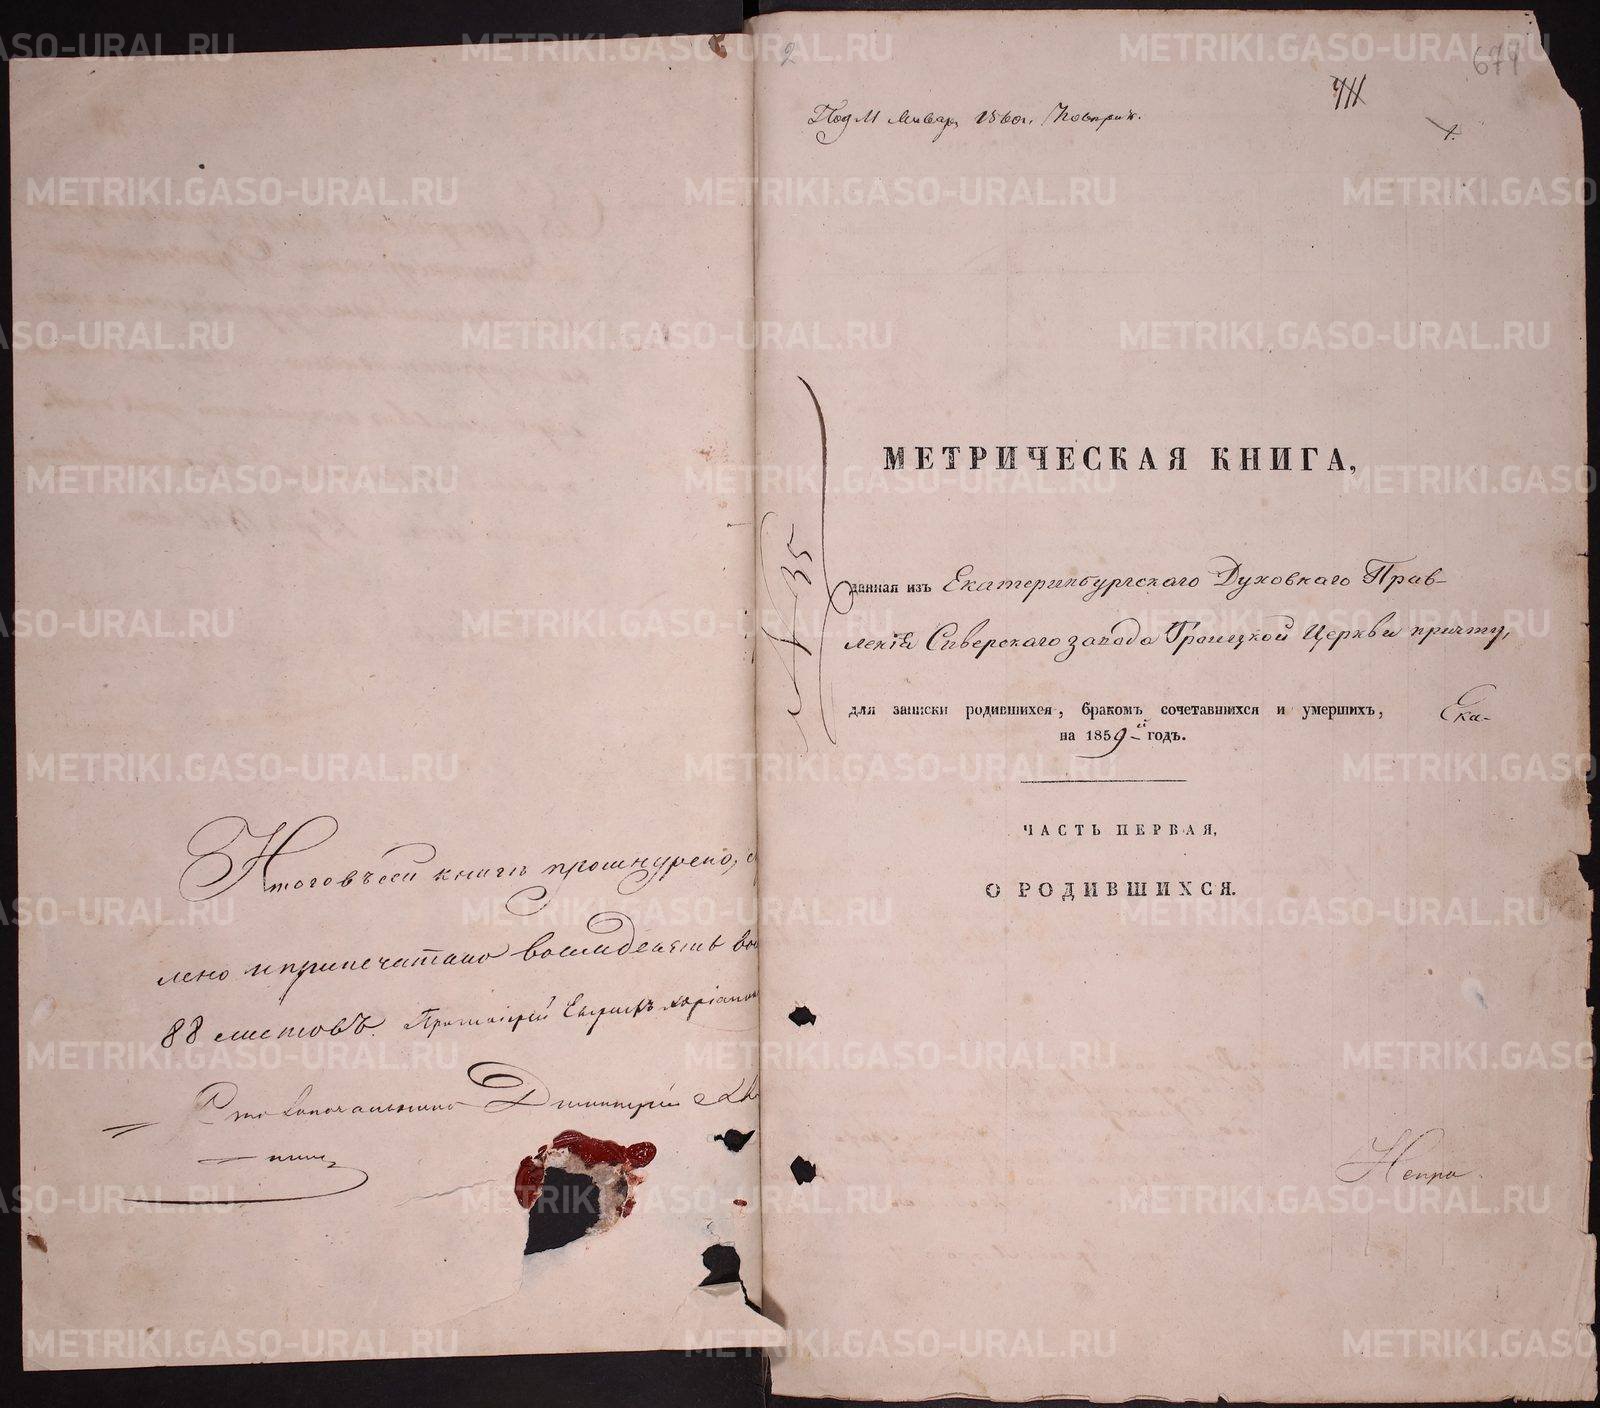 Итого въ сей книгѣ прошнурено,
лено и припечатано восмдесятъ во
88 листовъ. Протоіерей
Столоначальникъ Димитрій
2
679
Под. 11 Январ. 1860 г.
1.
№ 35
МЕТРИЧЕСКАЯ КНИГА,
данная изъ Екатеринбургскаго Духовнаго Прав-
ленія Сѣверскаго завода Троицкой Церкви причту,
для записки родившихся, бракомъ сочетавшихся и умершихъ,
Ека-
на 1859-й годъ.
ЧАСТЬ ПЕРВАЯ,
О РОДИВШИХСЯ.
METRIKI.GASO-URAL.RU